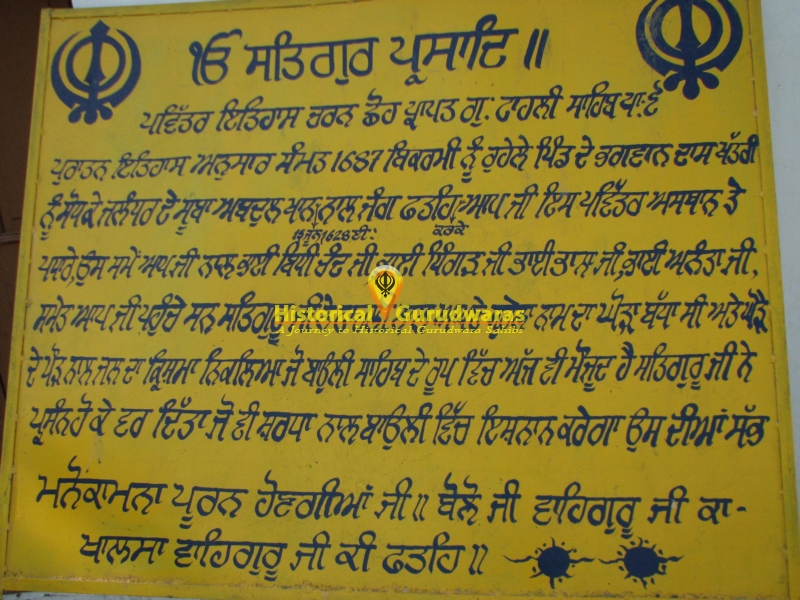 ੴ ਸਤਿਗੁਰ ਪ੍ਰਸਾਦਿ ॥
ਪਵਿੱਤਰ ਇਤਿਹਾਸ ਚਰਨ ਛੋਹ ਪ੍ਰਾਪਤ ਗੁ. ਟਾਹਲੀ ਸਾਹਿਬ ਪਾ: ੬
ਪੁਰਾਤਨ ਇਤਿਹਾਸ ਅਨੁਸਾਰ ਸੰਮਤ 1687 ਬਿਕਰਮੀ ਨੂੰ ਰੁਹੇਲੇ ਪਿੰਡ ਦੇ ਭਗਵਾਨ ਦਾਸ ਖੱਤਰੀ
ਨੂੰ ਸੋਧ ਕੇ ਜਲੰਧਰ ਦੇ ਸੂਬਾ ਅਬਦੁਲ ਖਾਨ ਨਾਲ ਜੰਗ ਫਤਹਿ ਆਪ ਜੀ ਇਸ ਪਵਿੱਤਰ ਅਸਥਾਨ ਤੇ
ਜੂਨ 1628 ਈ: ਕਰਕੇ
ਪਧਾਰੇ, ਉਸ ਸਮੇਂ ਆਪ ਜੀ ਨਾਲ ਭਾਈ ਬਿਧੀ ਚੰਦ ਜੀ ਭਾਈ ਪਿੰਗੜ ਜੀ ਭਾਈ ਭਾਨ ਜੀ, ਭਾਈ ਅਨੰਤਾ ਜੀ,
ਸਮੇਤ ਆਪ ਜੀ ਪਹੁੰਚੇ ਸਨ ਸਤਿਗੁਰੂ ਨਾਮ ਦਾ ਘੋੜਾ ਬੱਧਾ ਸੀ ਅਤੇ ਘੋੜੇ
ਦੇ ਪੌੜ ਨਾਲ ਜਲ ਦਾ ਕ੍ਰਿਸ਼ਮਾ ਨਿਕਲਿਆ ਜੋ ਬਾਉਲੀ ਸਾਹਿਬ ਦੇ ਰੂਪ ਵਿੱਚ ਅੱਜ ਵੀ ਮੌਜੂਦ ਹੈ ਸਤਿਗੁਰੂ ਜੀ ਨੇ
ਪ੍ਰਸੰਨ ਹੋ ਕੇ ਵਰ ਦਿੱਤਾ ਜੋ ਵੀ ਸ਼ਰਧਾ ਨਾਲ ਬਾਉਲੀ ਵਿੱਚ ਇਸ਼ਨਾਨ ਕਰੇਗਾ ਉਸ ਦੀਆਂ ਸੱਭ
ਮਨੋਕਾਮਨਾ ਪੂਰਨ ਹੋਣਗੀਆਂ ਜੀ ॥ ਬੋਲੋ ਜੀ ਵਾਹਿਗੁਰੂ ਜੀ ਕਾ-
ਖਾਲਸਾ ਵਾਹਿਗੁਰੂ ਜੀ ਕੀ ਫਤਹਿ ॥
Historical Gurudwaras
A Journey to Historical Gurudwara Sahibs